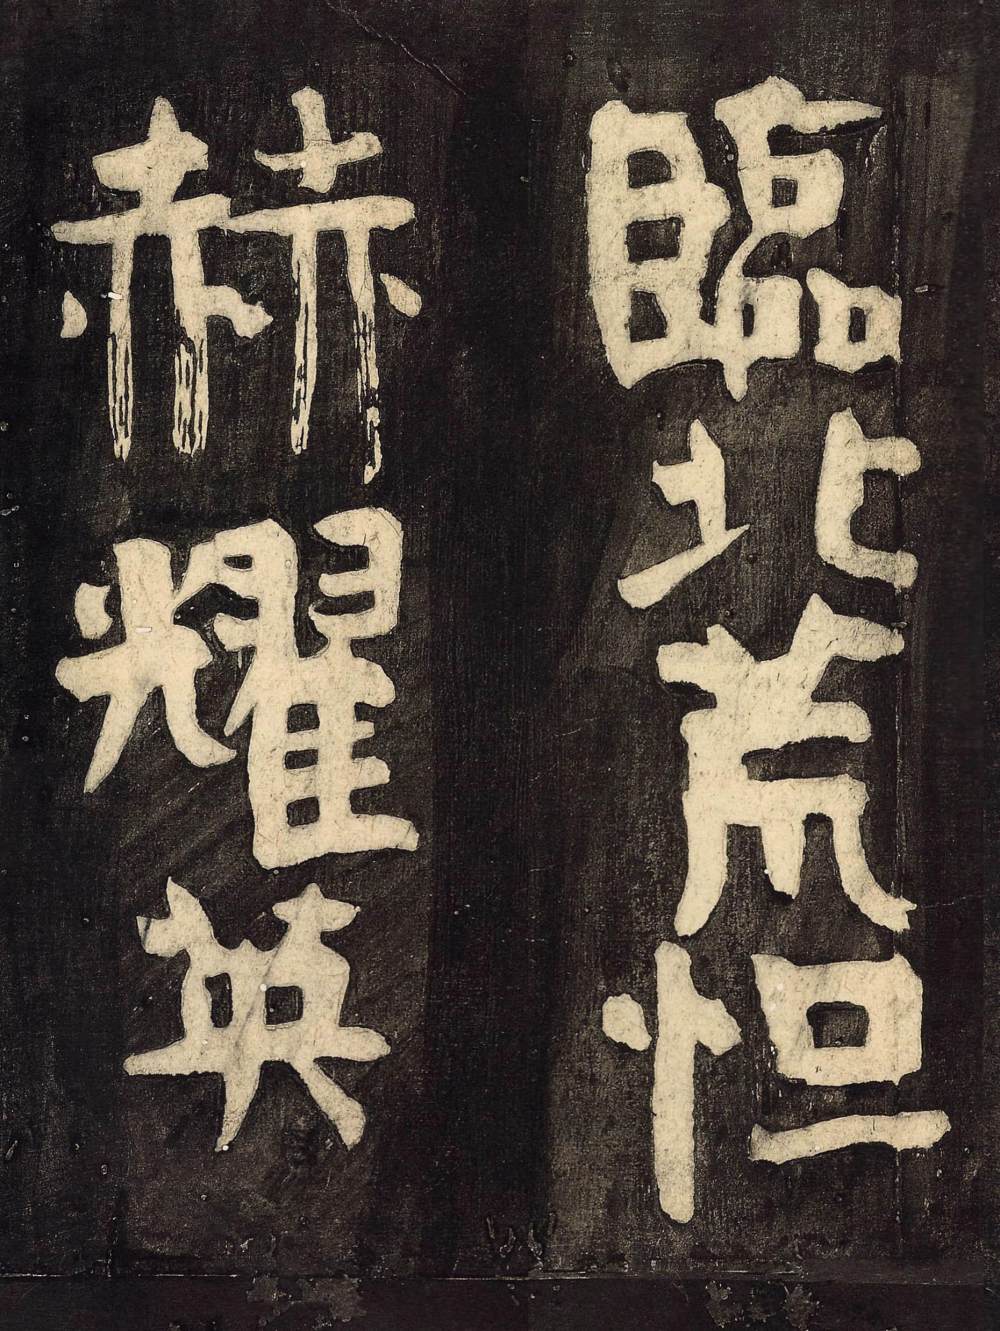 臨北荒怛
赫耀英